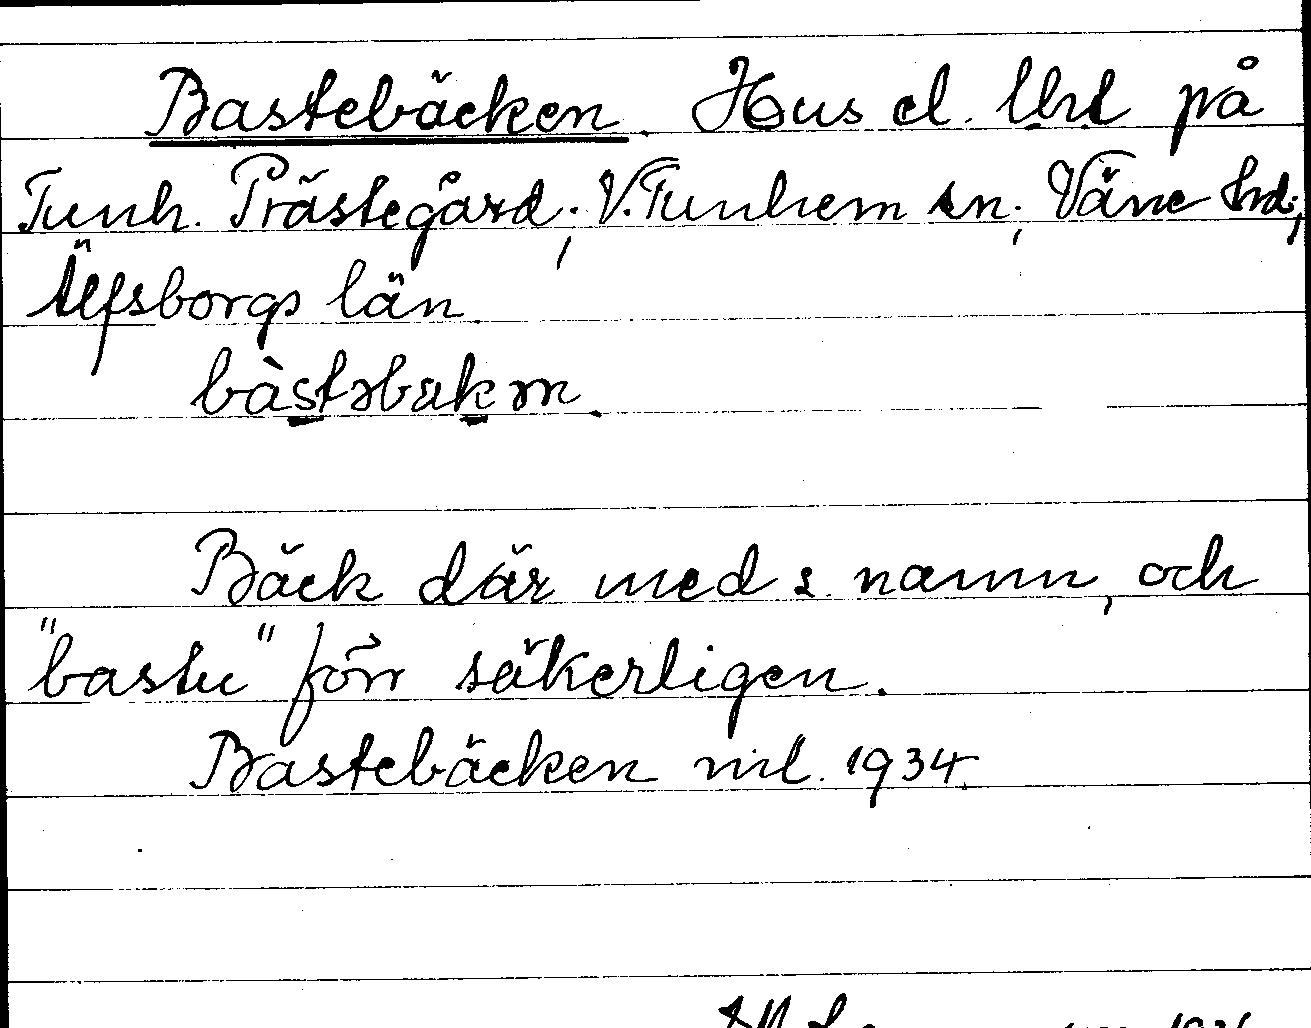 Bastebäcken. Hus el. lht på
Tunh. Prästegård; V. Tunhem sn; Väne hd;
Älfsborgs län.
bàstəbäkən.
Bäck där med s. namn, och
"bastu" förr säkerligen.
Bastebäcken ml. 1934.